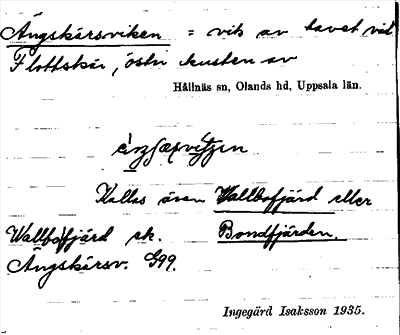 Ängskärsviken = vik av havet vid
Flottskär, östra kusten av
Hållnäs sn, Olands hd, Uppsala län.
Kallas även Wallbofjärd eller
Wallbofjärd ek. Bondfjärden.
Ängskärsv. G99.
Ingegärd Isaksson 1935.